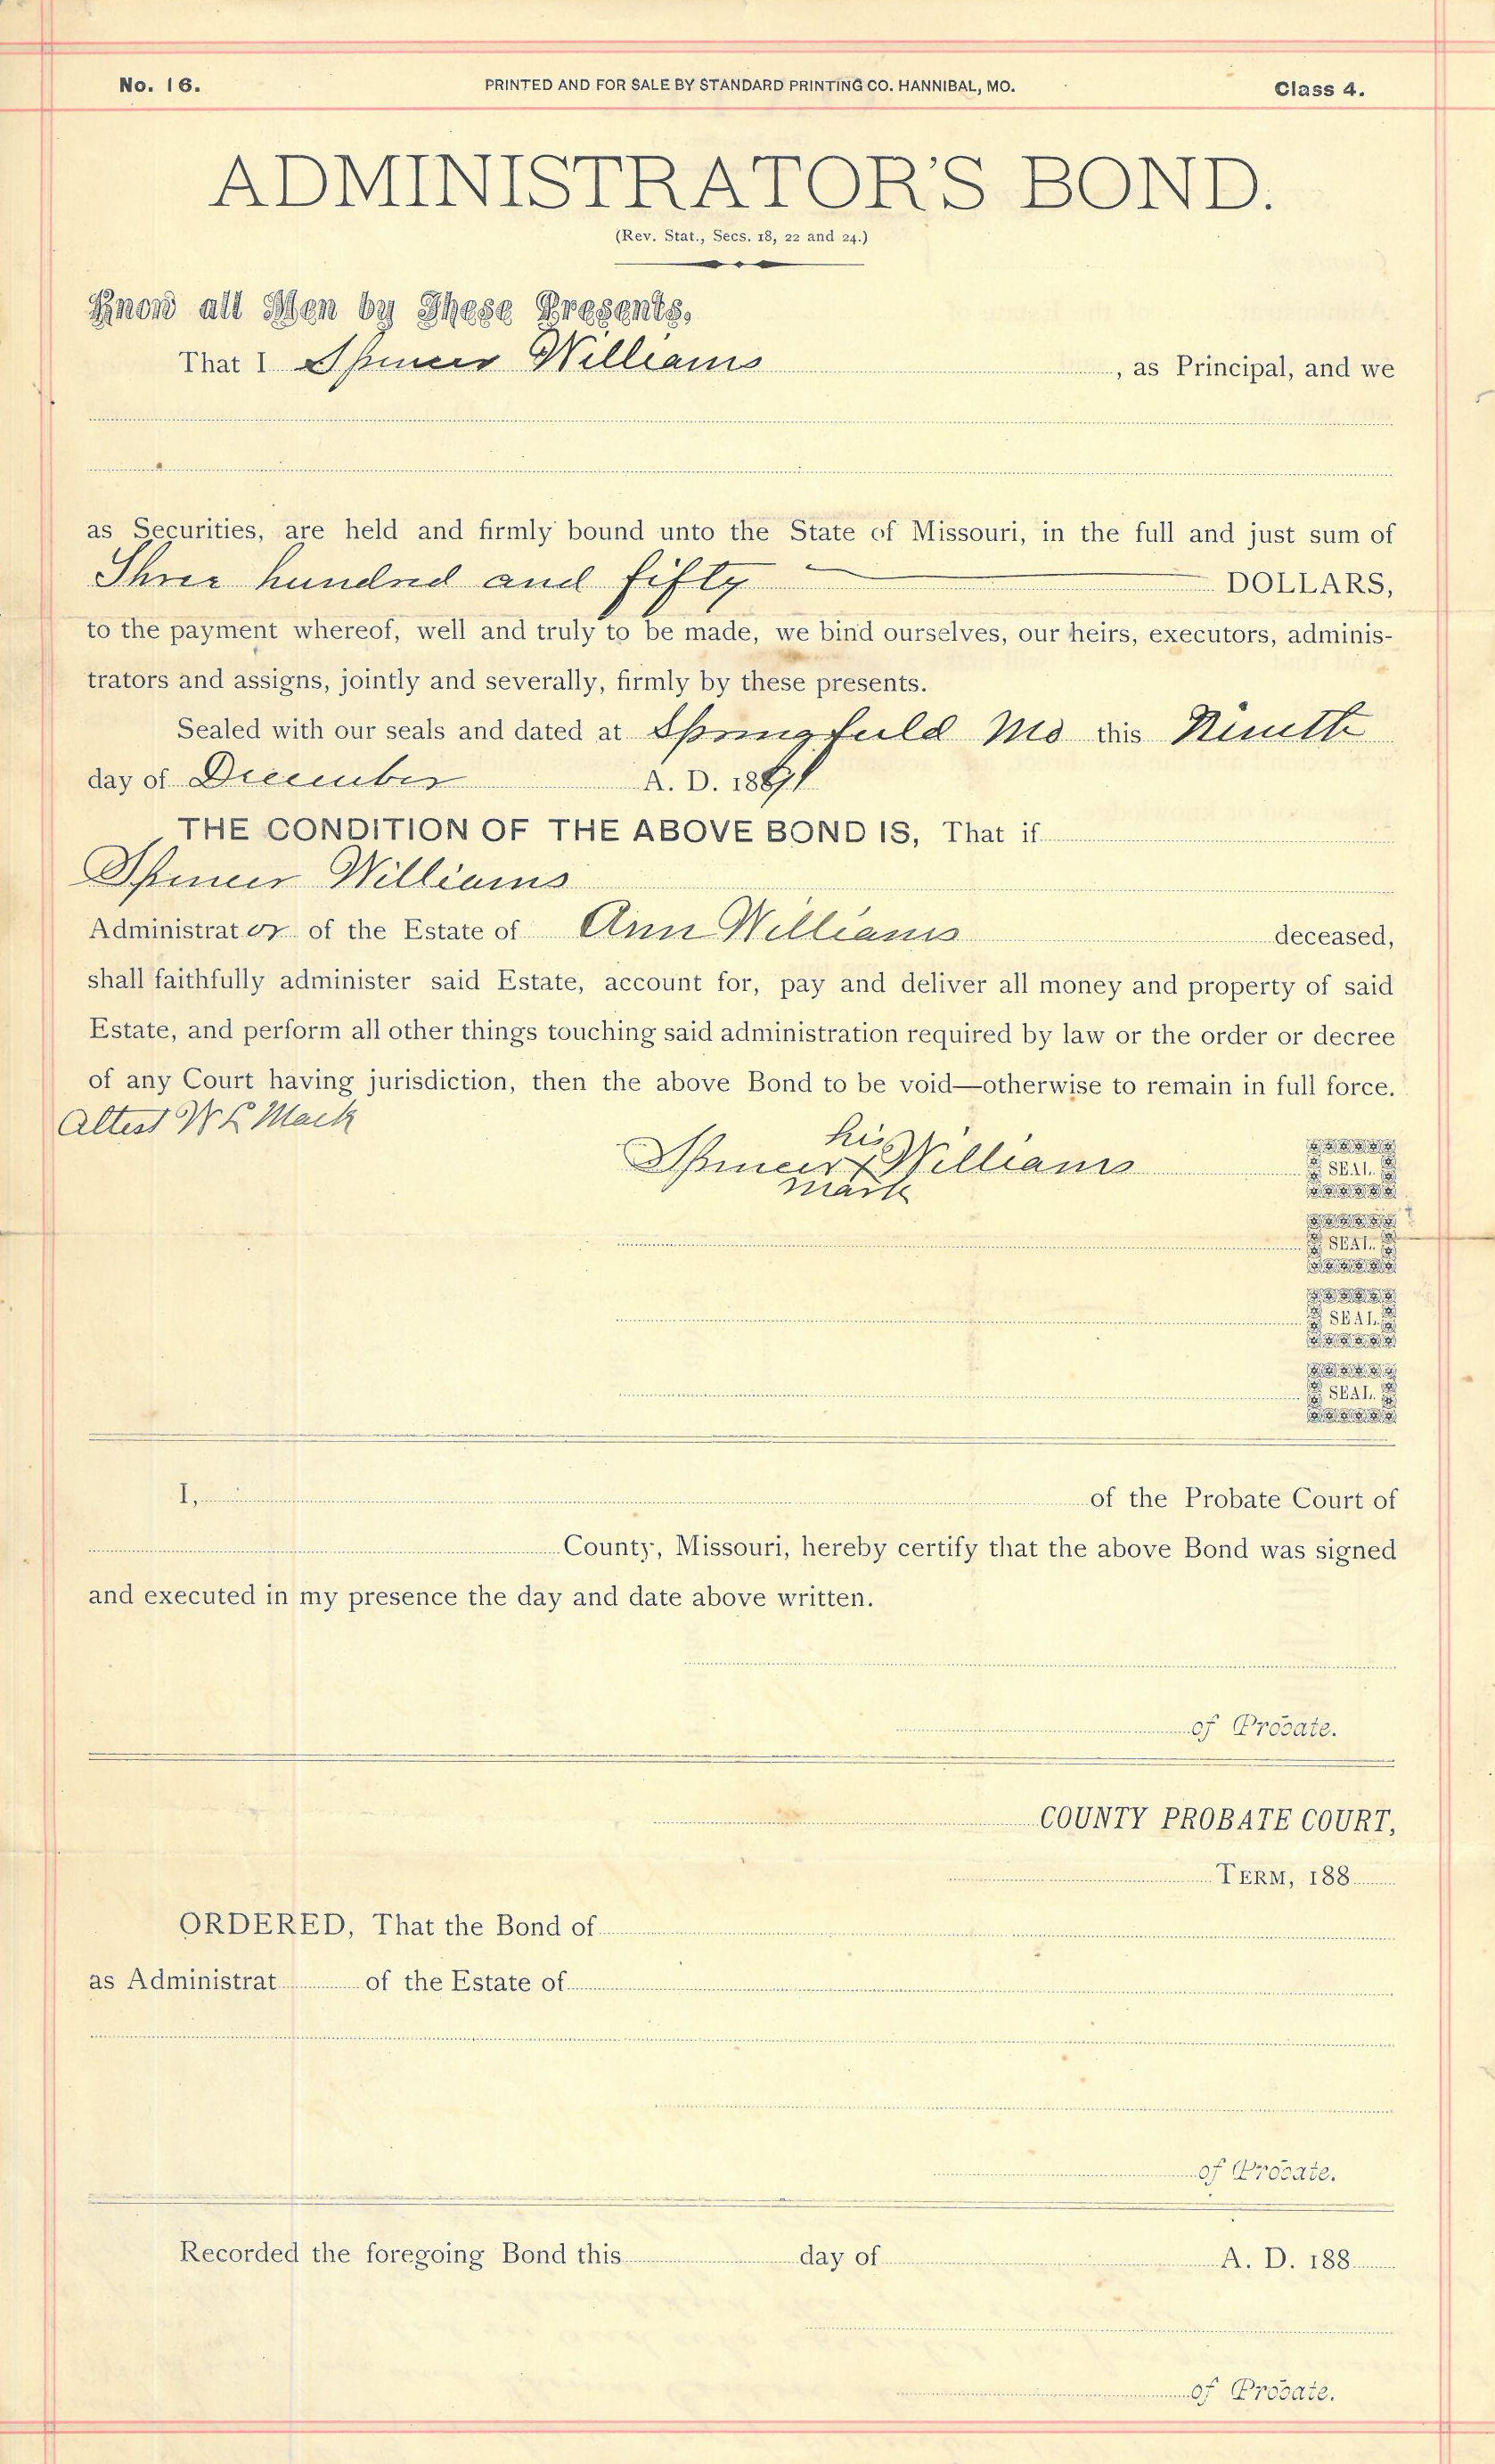 No. 16. PRINTED AND FOR SALE BY STANDARD PRINTING CO. HANNIBAL, MO. Class 4.
ADMINISTRATOR'S BOND.
(Rev. Stat., Secs. 18, 22 and 24.)
Know all Men by These Presents,
That I Spencer Williams, as Principal, and we
as Securities, are held and firmly bound unto the State of Missouri, in the full and just sum of
Three hundred and fifty DOLLARS,
to the payment whereof, well and truly to be made, we bind ourselves, our heirs, executors, adminis-
trators and assigns, jointly and severally, firmly by these presents.
Sealed with our seals and dated at Springfield Mo this Nineth
day of December A. D. 1891
THE CONDITION OF THE ABOVE BOND IS, That if
Spencer Williams
Administrator of the Estate of Ann Williams deceased,
shall faithfully administer said Estate, account for, pay and deliver all money and property of said
Estate, and perform all other things touching said administration required by law or the order or decree
of any Court having jurisdiction, then the above Bond to be void—otherwise to remain in full force.
Attest W L Mack
his
Spencer x Williams SEAL
mark
SEAL
SEAL
SEAL
I, of the Probate Court of
County, Missouri, hereby certify that the above Bond was signed
and executed in my presence the day and date above written.
of Probate.
COUNTY PROBATE COURT,
TERM, 188
ORDERED, That the Bond of
as Administrat of the Estate of
of Probate.
Recorded the foregoing Bond this day of A. D. 188
of Probate.